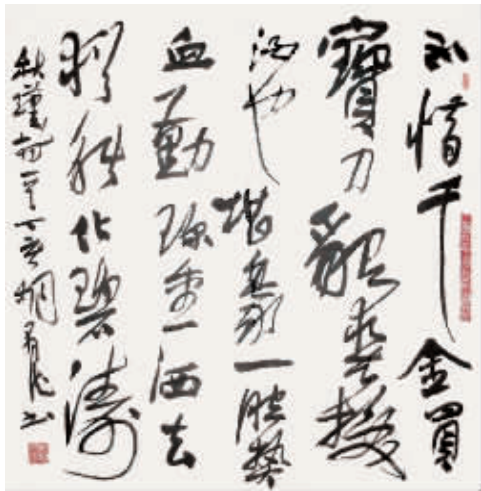 不惜千金買
寶刀貂裘換
酒也堪豪一腔熱
血勤珍重洒去
猶能化碧濤
秋瑾詩一首丁亥书